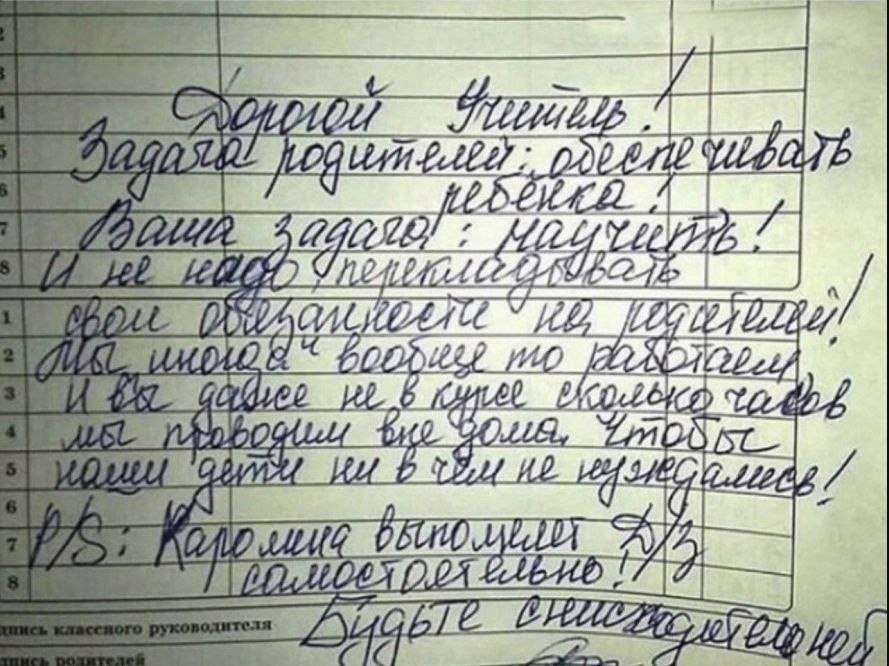 2
3
4 Дорогой Учитель!
5 Задача родителей: обеспечивать
6 ребёнка!
7 Ваша задача: научить!
8 И не надо перекладывать
1 свои обязанности на родителей!
2 Мы „иногда“ вообще то работаем,
3 И вы даже не в курсе сколько часов
4 мы проводим вне дома. Чтобы
5 наши дети ни в чём не нуждались!
6
7 P/S: Каролина выполняет Д/З
8 самостоятельно!
дпись классного руководителя Будьте снисходительней
дпись родителей